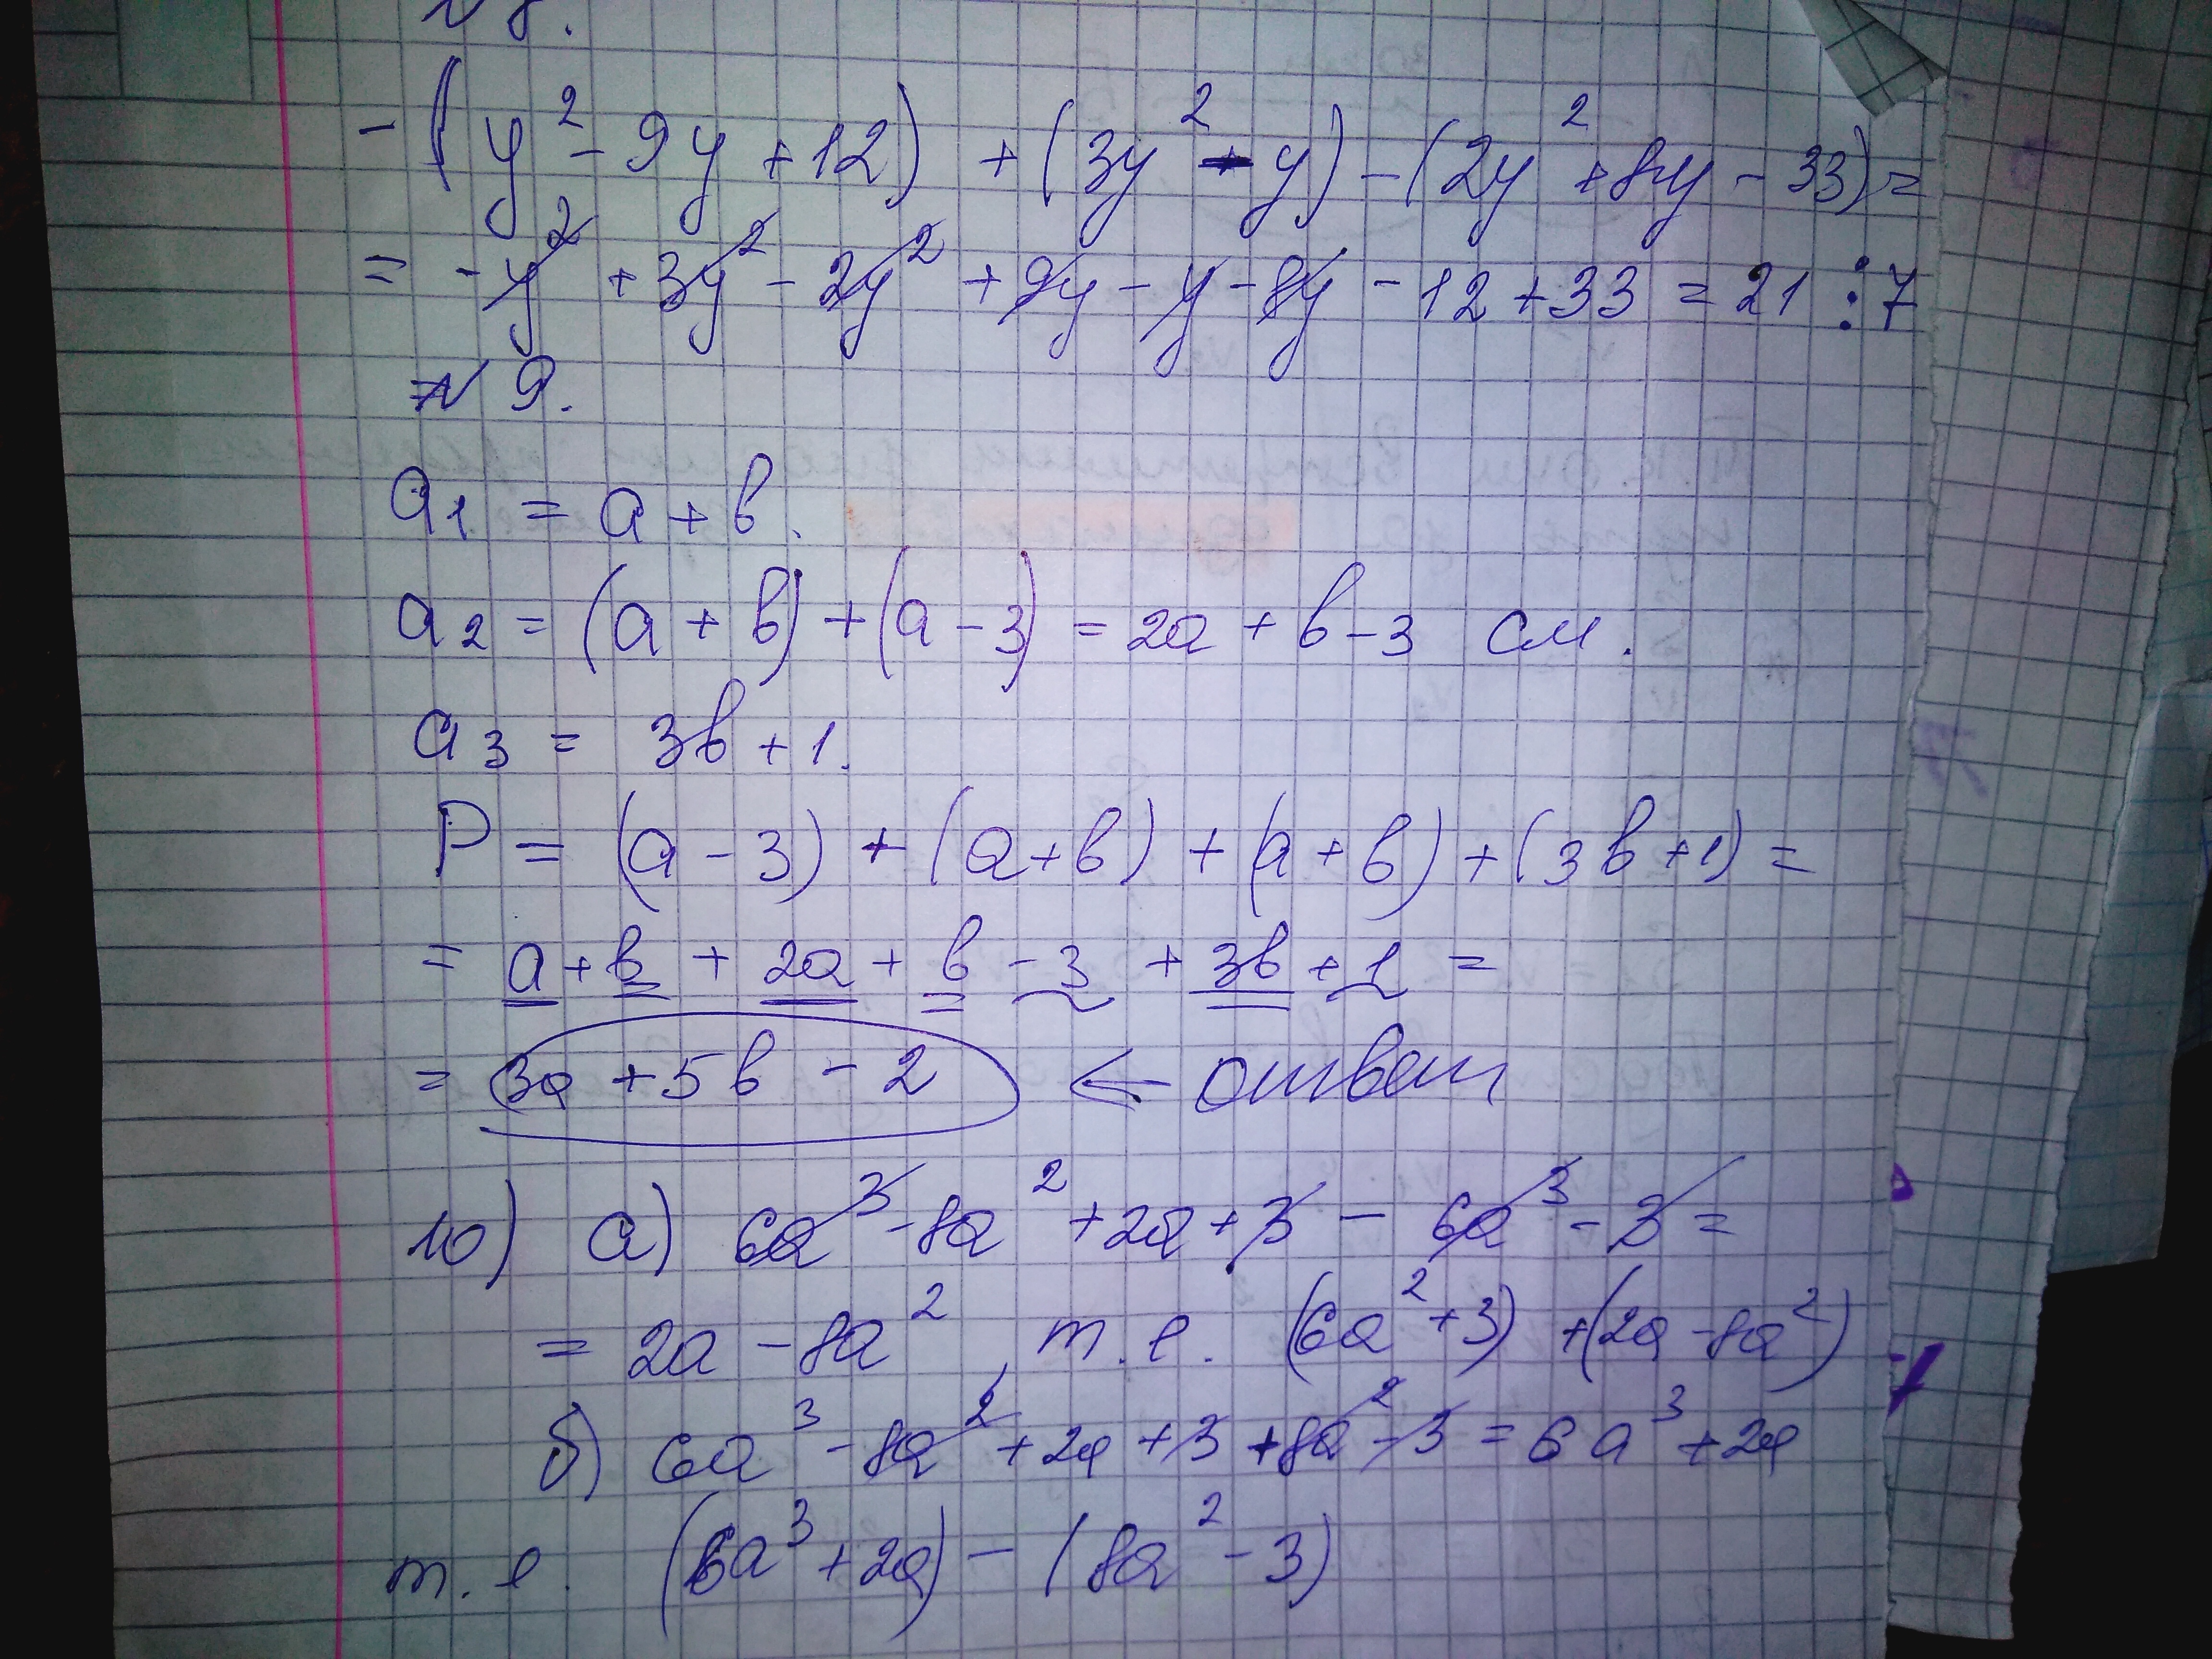 N 8.
-(y² - 9y + 12) + (3y² - y) - (2y² + 8y - 33) =
= -y² + 3y² - 2y² + 9y - y - 8y - 12 + 33 = 21 ⋮ 7
N 9.
a₁ = a + b.
a₂ = (a + b) + (a - 3) = 2a + b - 3 см.
a₃ = 3b + 1.
P = (a - 3) + (a + b) + (a + b) + (3b + 1) =
= a + b + 2a + b - 3 + 3b + 1 =
= 3a + 5b - 2 ← ответ
10) a) 6a³ - 8a² + 2a + 3 - 6a³ - 3 =
= 2a - 8a², т.е. (6a² + 3) + (2a - 8a²)
б) 6a³ - 8a² + 2a + 3 + 8a² - 3 = 6a³ + 2a
т.е. (6a³ + 2a) - (8a² - 3)